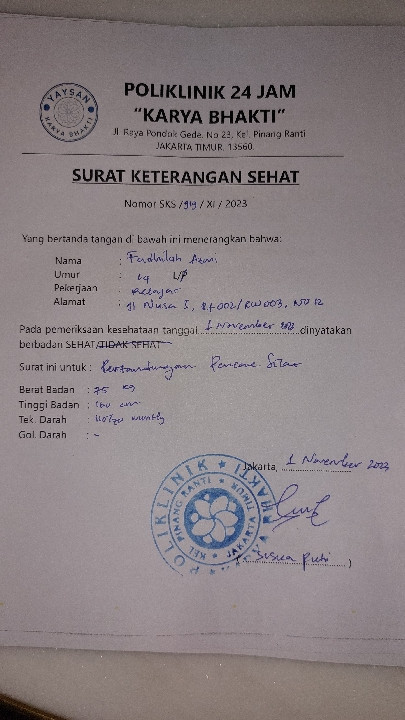 YAYSAN
KARYA BHAKTI
POLIKLINIK 24 JAM
“KARYA BHAKTI”
Jl. Raya Pondok Gede. No 23, Kel. Pinang Ranti
JAKARTA TIMUR. 13560.
SURAT KETERANGAN SEHAT
Nomor SKS /919 / XI / 2023
Yang bertanda tangan di bawah ini menerangkan bahwa:
Nama : Fadhilah Azmi
Umur : L/P
Pekerjaan : Pelajar
Alamat : Jl Nusa I, Rt002/RW003, NO 12
Pada pemeriksaan kesehataan tanggal 1 November 2023 dinyatakan
berbadan SEHAT/TIDAK SEHAT
Surat ini untuk : Pertandingan Pencak Silat
Berat Badan : 75 kg
Tinggi Badan : 160 cm
Tek. Darah : mmHg
Gol. Darah : -
Jakarta, 1 November 2023
POLIKLINIK KARYA BHAKTI
KEL PINANG RANTI JAKARTA TIMUR